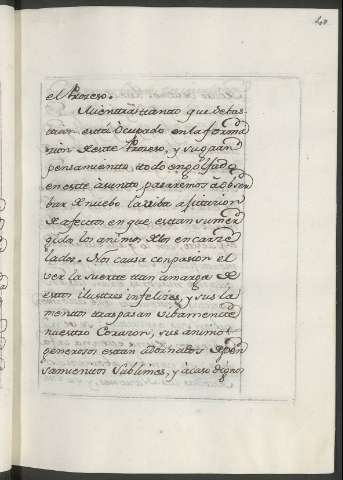 40
el Prozeso.
Mientras tanto que Betas-
está Ocupado en la forma
zion de este Prozeso, y su gran
pensamiento, todo engolfado
en este asunto pasarremos a obser
bar de nuebo la vida a situzion
de afectos en que estan sumer
gidos los animos de los encarze
lados. Nos causa conpasion el
ver la suerte tan amarga de
estos ilustres infelizes, y sus la
mentos traspasan vibamente
nuestro Corazon, sus animos
generosos estan adornados de pen
samientos Sublimes, y acaso dignos